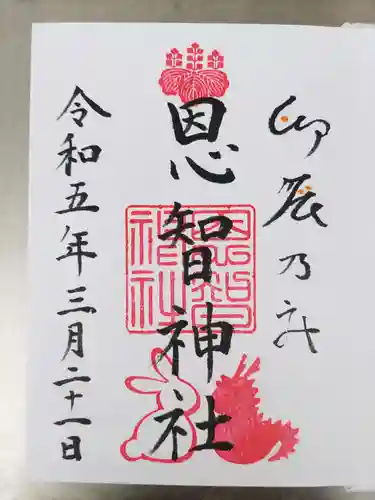 卯辰乃が
恩智神社
恩智神社
令和五年三月二十一日